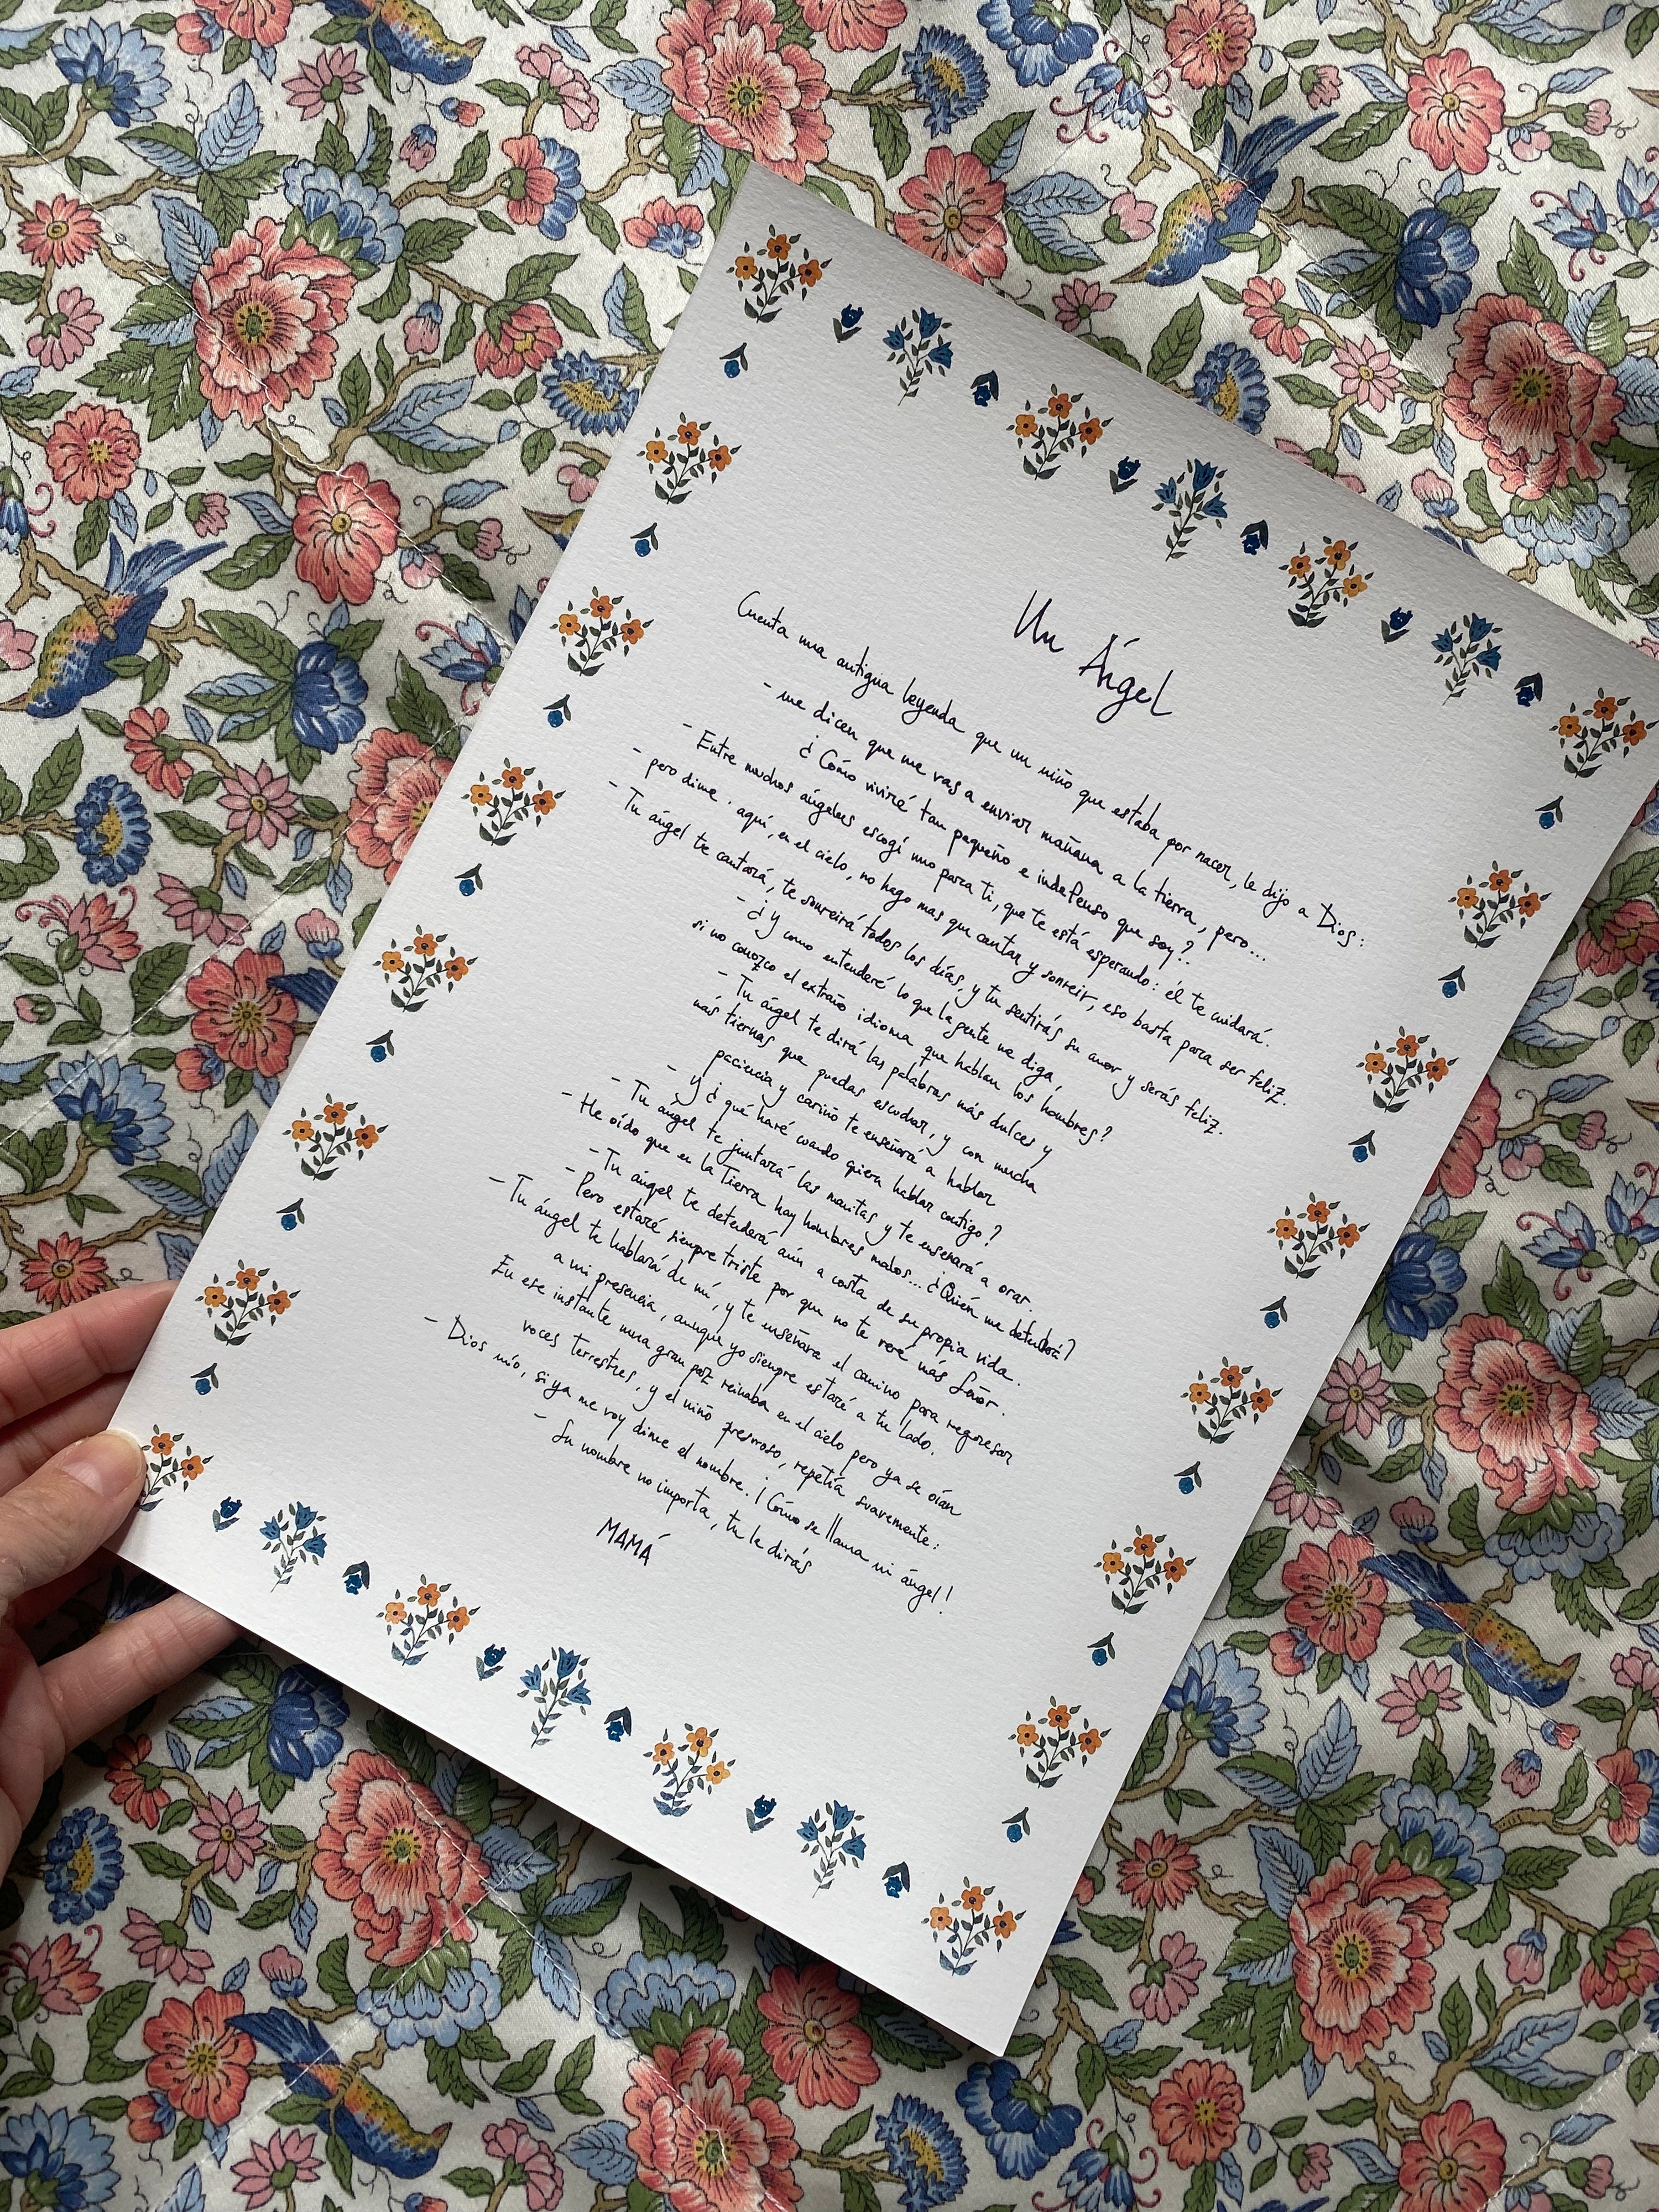 Un Ángel
Cuenta una antigua leyenda que un niño que estaba por nacer, le dijo a Dios:
- me dicen que me vas a enviar mañana a la tierra, pero...
¿Cómo viviré tan pequeño e indefenso que soy?.
- Entre muchos ángeles escogí uno para ti, que te está esperando: él te cuidará.
- pero dime. aquí, en el cielo, no hago mas que cantar y sonreír, eso basta para ser feliz.
- Tu ángel te cantará, te sonreirá todos los días, y tu sentirás su amor y serás feliz.
- ¿y como entenderé lo que la gente me diga,
si no conozco el extraño idioma que hablan los hombres?
- Tu ángel te dirá las palabras más dulces y
más tiernas que puedas escuchar, y con mucha
paciencia y cariño te enseñará a hablar
- y ¿qué haré cuando quiera hablar contigo?
- Tu ángel te juntará las manitas y te enseñará a orar.
- He oído que en la Tierra hay hombres malos... ¿Quién me defenderá?
- Tu ángel te defenderá aún a costa de su propia vida.
- Pero estaré siempre triste por que no te veré más Señor.
- Tu ángel te hablará de mí, y te enseñara el camino para regresar
a mi presencia, aunque yo siempre estaré a tu lado.
En ese instante una gran paz reinaba en el cielo pero ya se oían
voces terrestres, y el niño presuroso, repetía suavemente:
- Dios mío, si ya me voy dime el nombre. ¡Cómo se llama mi ángel!
- Su nombre no importa, tu le dirás
MAMÁ